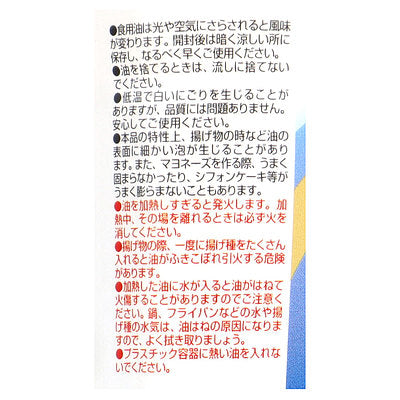 ●食用油は光や空気にさらされると風味
が変わります。開封後は暗く涼しい所に
保存し、なるべく早くご使用ください。
●油を捨てるときは、流しに捨てない
でください。
●低温で白いにごりを生じることが
ありますが、品質には問題ありません。
安心してご使用ください。
●本品の特性上、揚げ物の時など油の
表面に細かい泡が生じることがあり
ます。また、マヨネーズを作る際、うまく
固まらなかったり、シフォンケーキ等が
うまく膨らまないこともあります。
●油を加熱しすぎると発火します。加
熱中、その場を離れるときは必ず火を
消してください。
●揚げ物の際、一度に揚げ種をたくさん
入れると油がふきこぼれ引火する危険
があります。
●加熱した油に水が入ると油がはねて
火傷することがありますのでご注意く
ださい。鍋、フライパンなどの水や揚
げ種の水気は、油はねの原因になりま
すので、よく拭き取りましょう。
●プラスチック容器に熱い油を入れな
いでください。